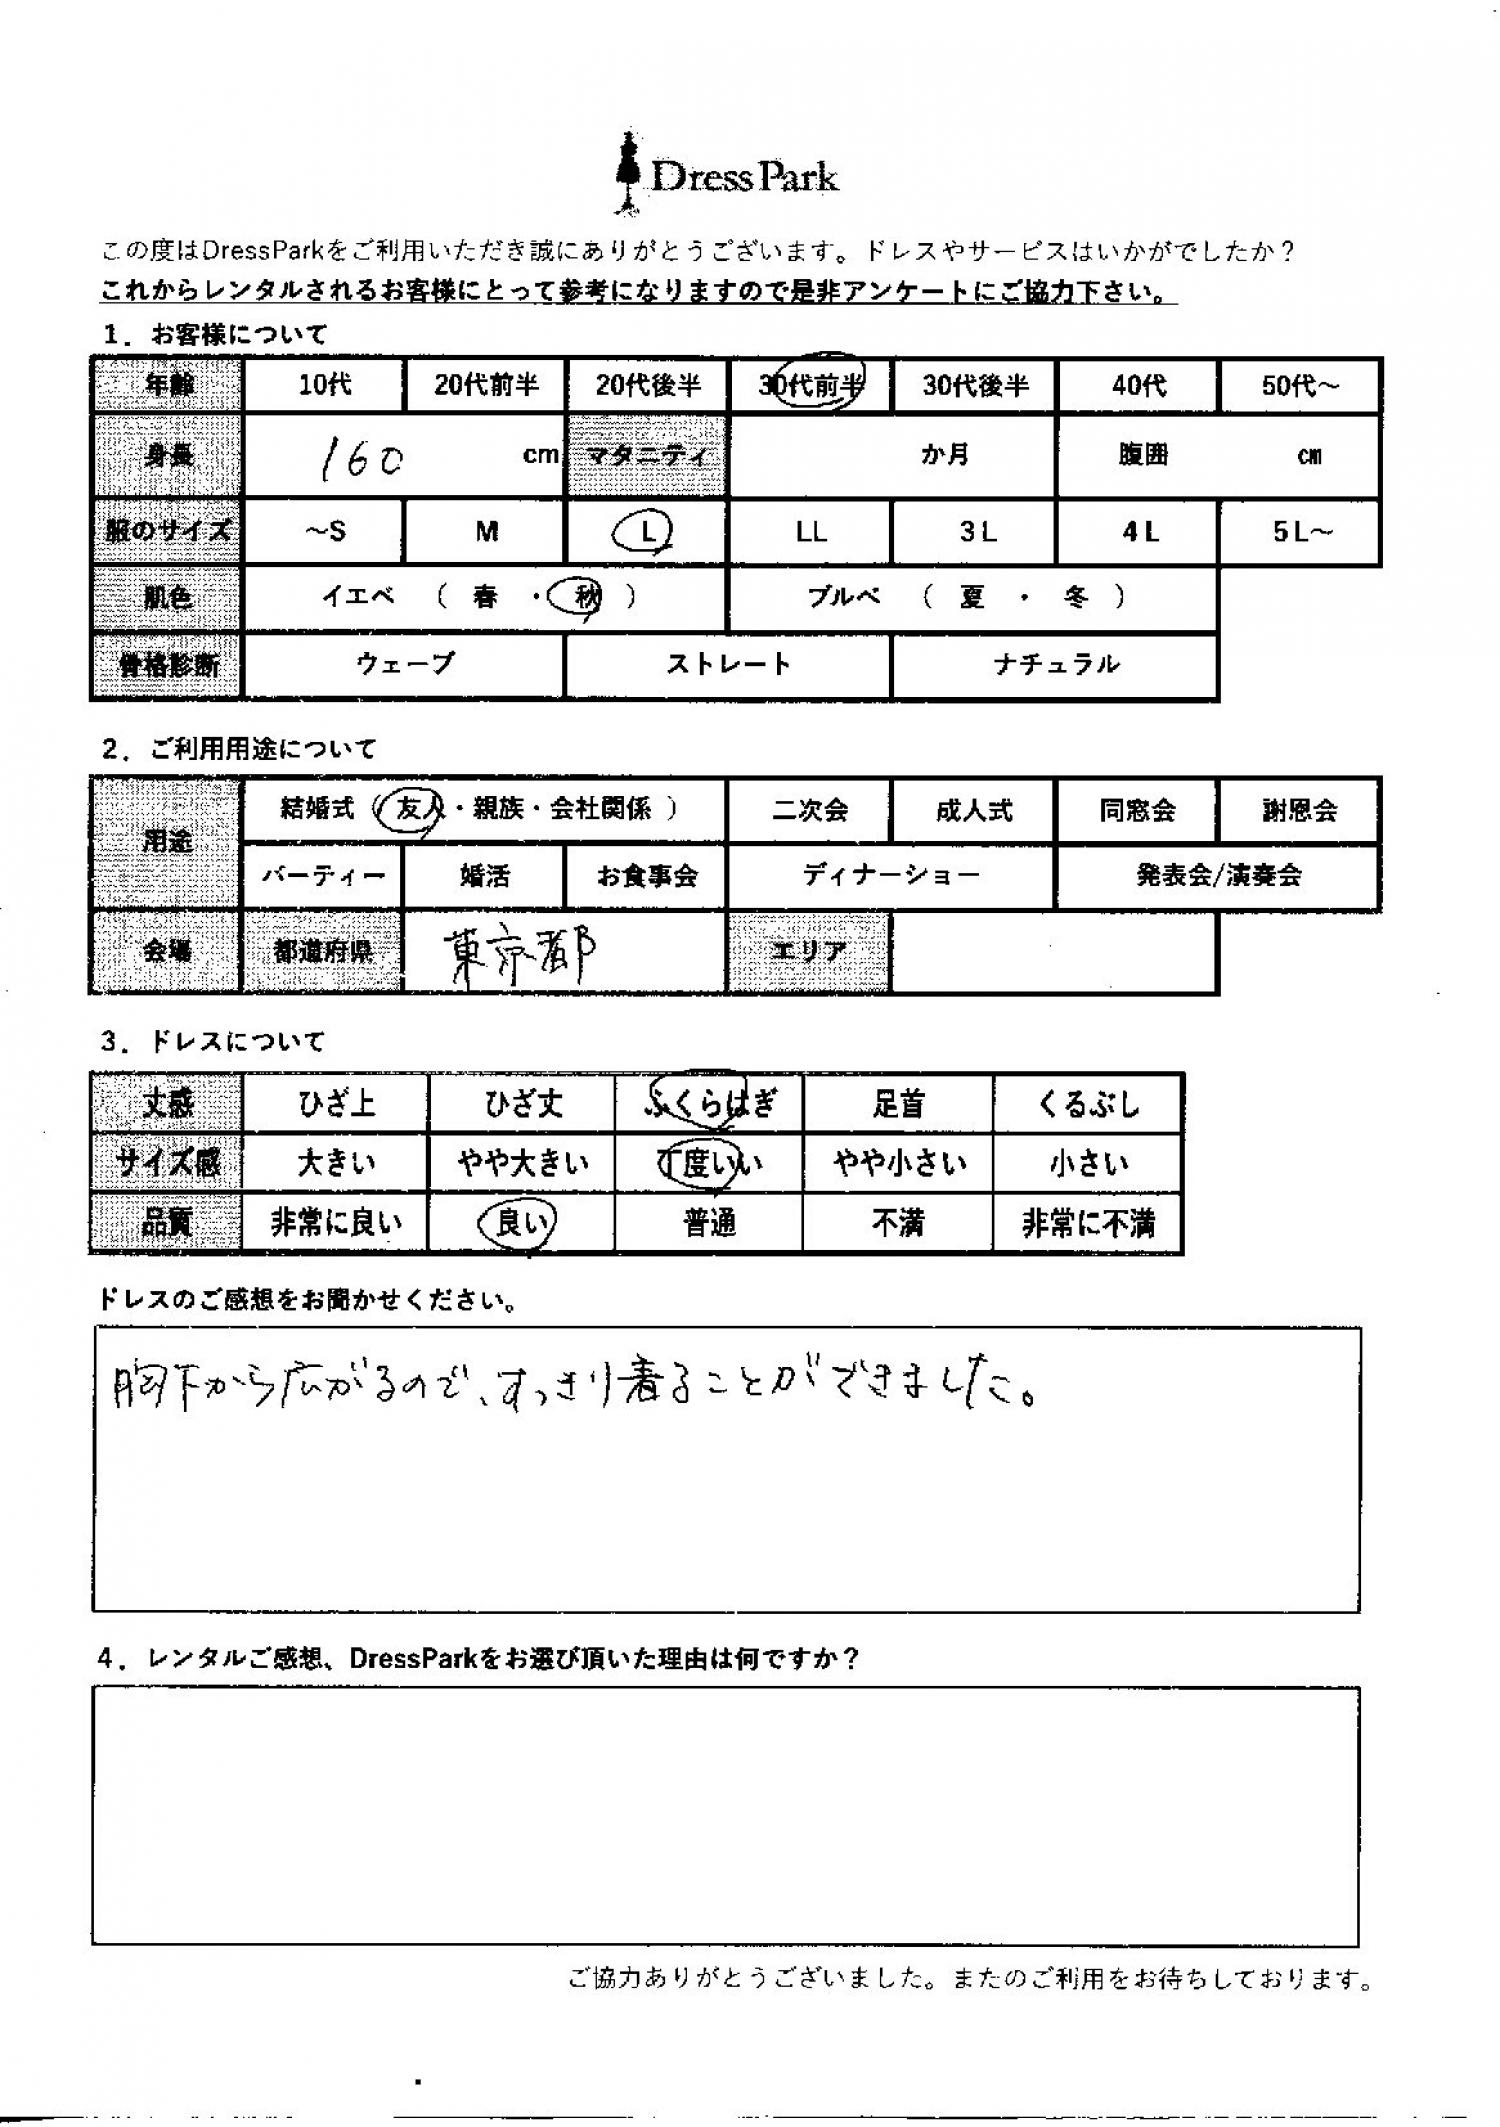 DressPark
この度はDressParkをご利用いただき誠にありがとうございます。ドレスやサービスはいかがでしたか？
これからレンタルされるお客様にとって参考になりますので是非アンケートにご協力下さい。
1．お客様について
年齢 10代 20代前半 20代後半 30代前半 30代後半 40代 50代～
身長 160 cm マタニティ か月 腹囲 cm
服のサイズ ～S M L LL 3L 4L 5L～
肌色 イエベ （ 春 ・ 秋 ） ブルベ （ 夏 ・ 冬 ）
骨格診断 ウェーブ ストレート ナチュラル
2．ご利用用途について
用途 結婚式（ 友人・親族・会社関係 ） 二次会 成人式 同窓会 謝恩会
パーティー 婚活 お食事会 ディナーショー 発表会/演奏会
会場 都道府県 東京都 エリア
3．ドレスについて
丈感 ひざ上 ひざ丈 ふくらはぎ 足首 くるぶし
サイズ感 大きい やや大きい 丁度いい やや小さい 小さい
品質 非常に良い 良い 普通 不満 非常に不満
ドレスのご感想をお聞かせください。
胸下から広がるので、すっきり着ることができました。
4．レンタルご感想、DressParkをお選び頂いた理由は何ですか？
ご協力ありがとうございました。またのご利用をお待ちしております。